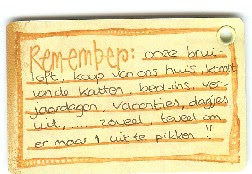 Remember: onze brui-
loft, koop van ons huis, komst
van de katten, bedruins, ver-
jaardagen, vakanties, dagjes
uit, .... zoveel, teveel om
er maar 1 uit te pikken !!